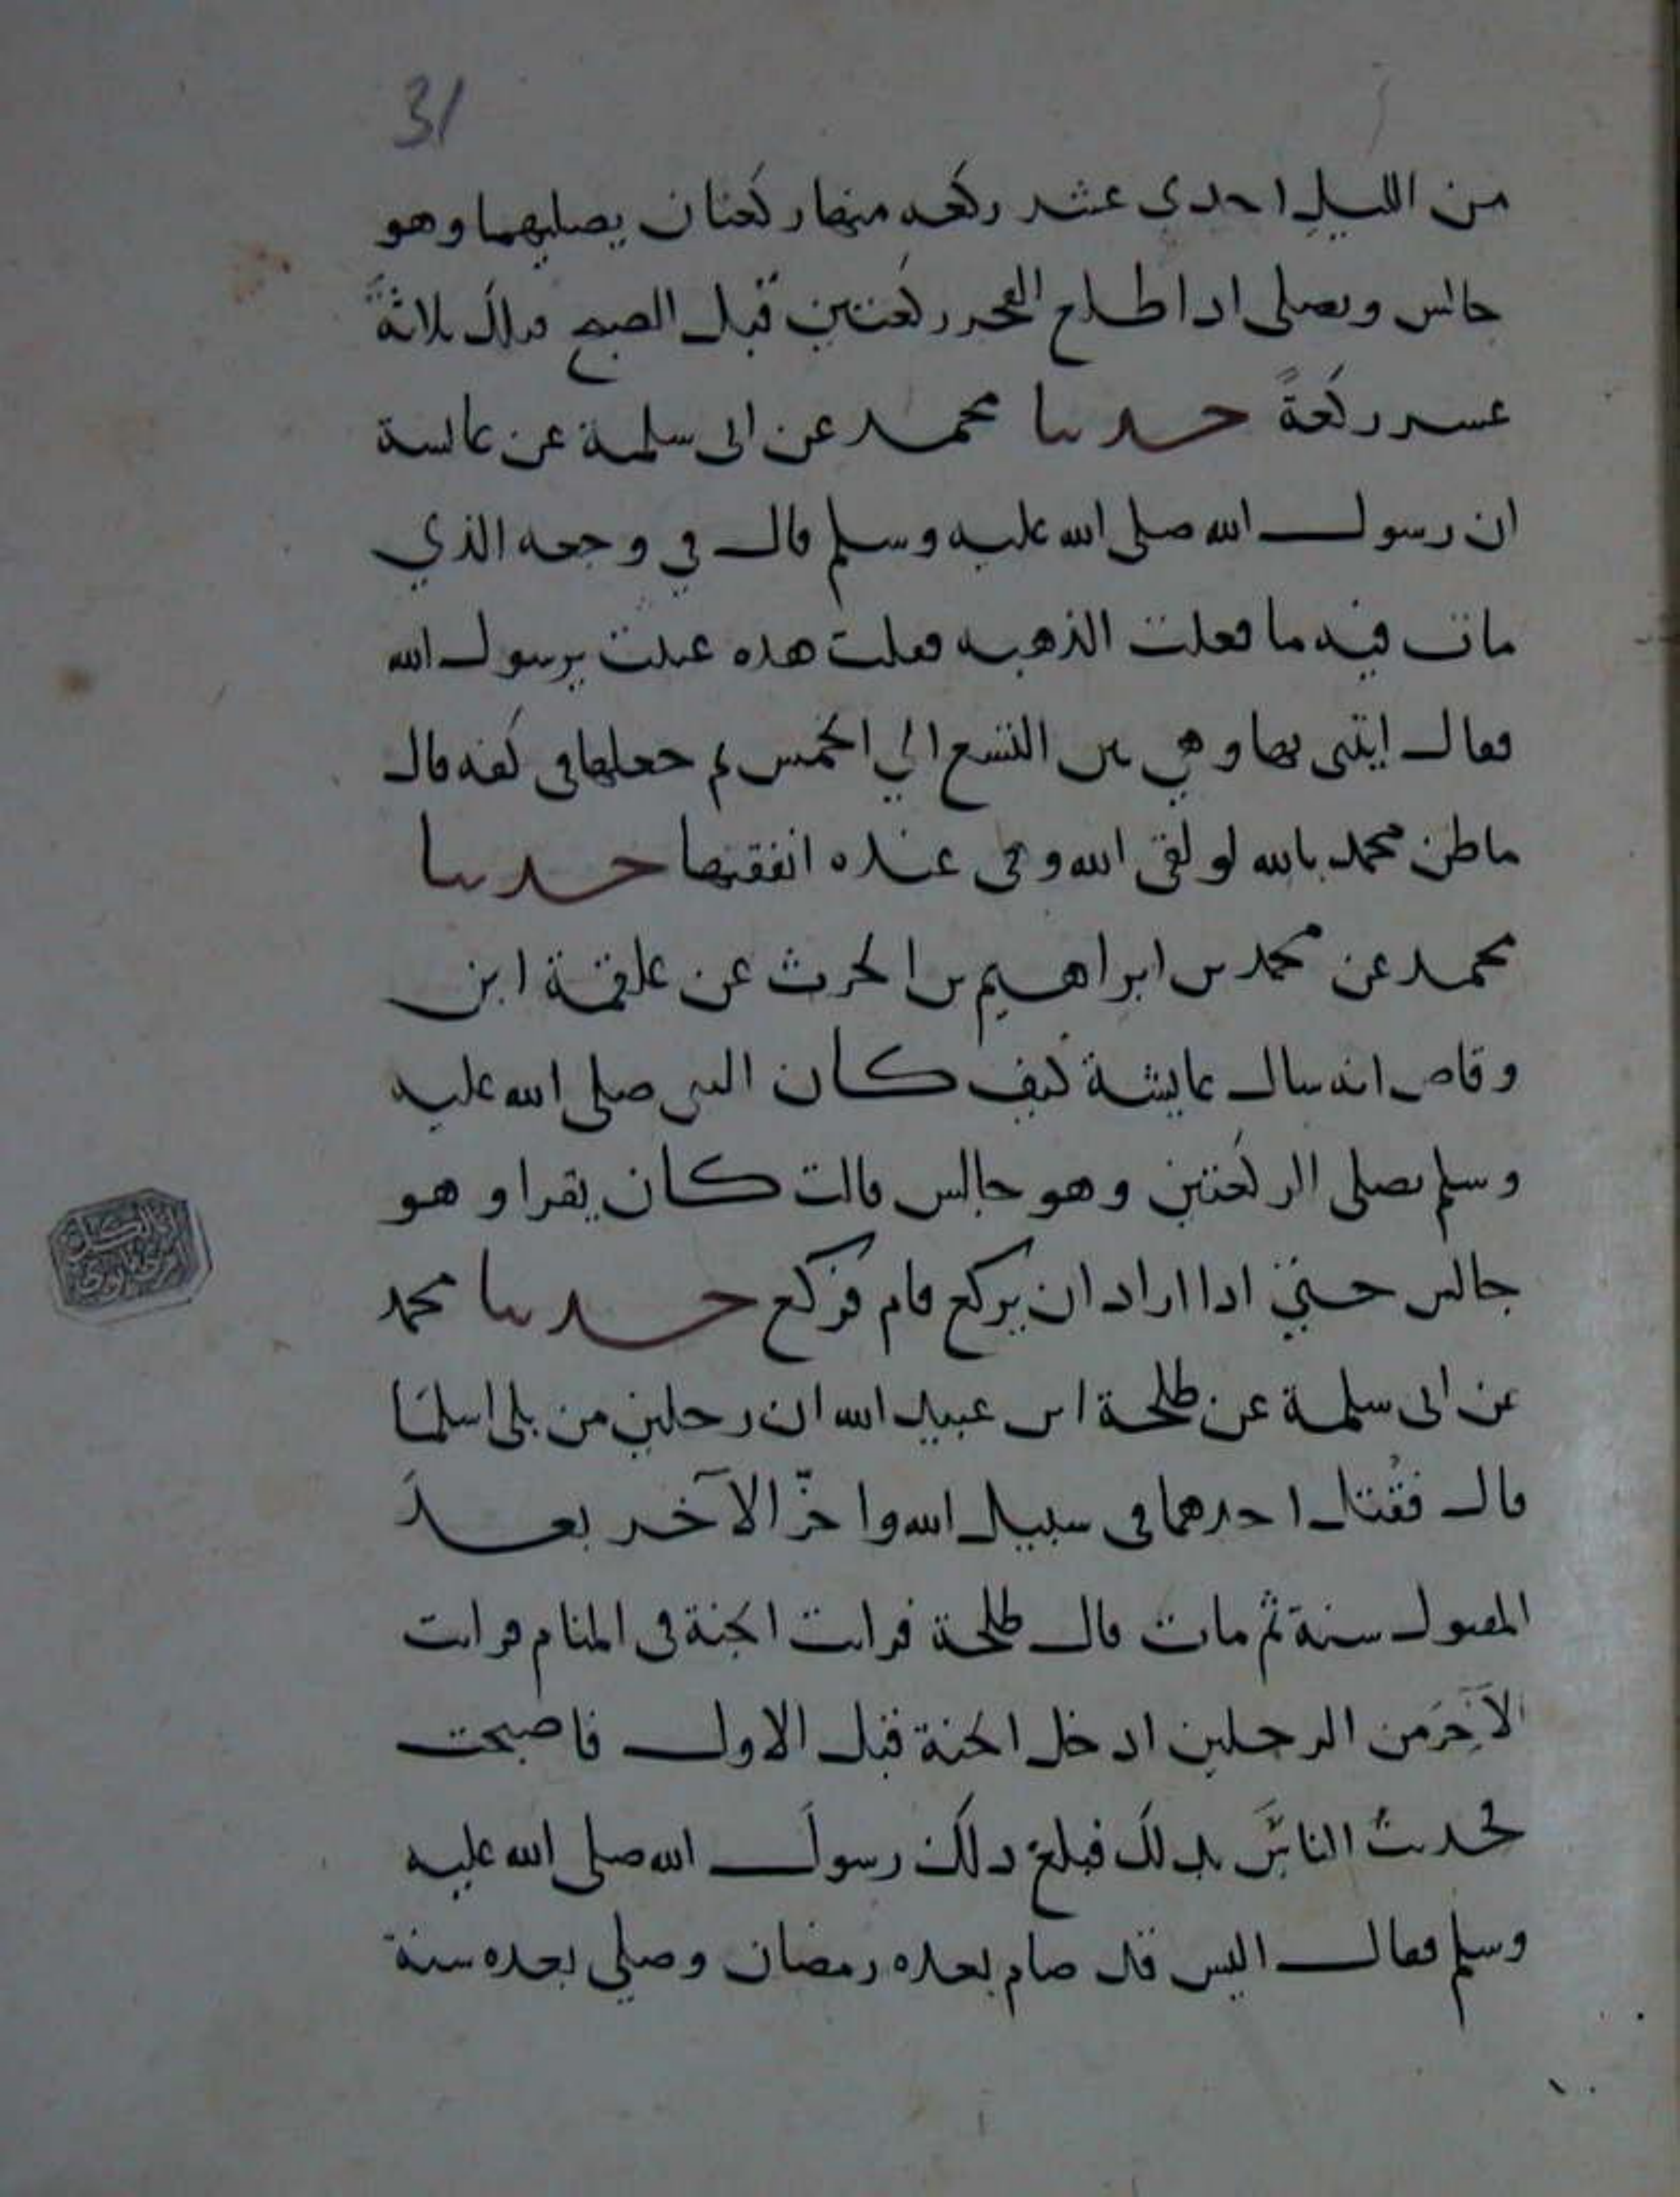 31
من الليل احدى عشر ركعه منها ركعتان يصليهما وهو
جالس ويصلى اذا طلع الفجر ركعتين قبل الصبح فذلك ثلاثة
عشر ركعةً حدثنا محمد عن ابى سلمة عن عائشة
ان رسول الله صلى الله عليه وسلم قال في وجعه الذي
مات فيه ما فعلت الذهبه فقلت هذه عندى يرسول الله
فقال ايتنى بها وهي بين التسع الي الخمس ثم جعلها فى كفه قال
ما ظن محمد بالله لو لقى الله وهى عنده انفقيها حدثنا
محمد عن محمد بن ابراهيم بن الحرث عن علقمة ابن
وقاص انه سال عايشة كيف كان النبى صلى الله عليه
وسلم يصلى الركعتين وهو جالس قالت كان يقرا وهو
جالس حتي اذا اراد ان يركع قام فركع حدثنا محمد
عن ابى سلمة عن طلحة ابن عبيد الله ان رجلين من بلى اسلمَا
قال فقُتل احدهما فى سبيل الله واخّر الآخر بعدَ
المقتول سنة ثم مات قال طلحة فرايت الجنة فى المنام فرايت
الآخِرَ من الرجلين ادخل الجنة قبل الاول فاصبحت
فحدثتُ الناسَ بذلك فبلغ ذلك رسولَ الله صلى الله عليه
وسلم فقال اليس قد صام بعده رمضان وصلي بعده سنة